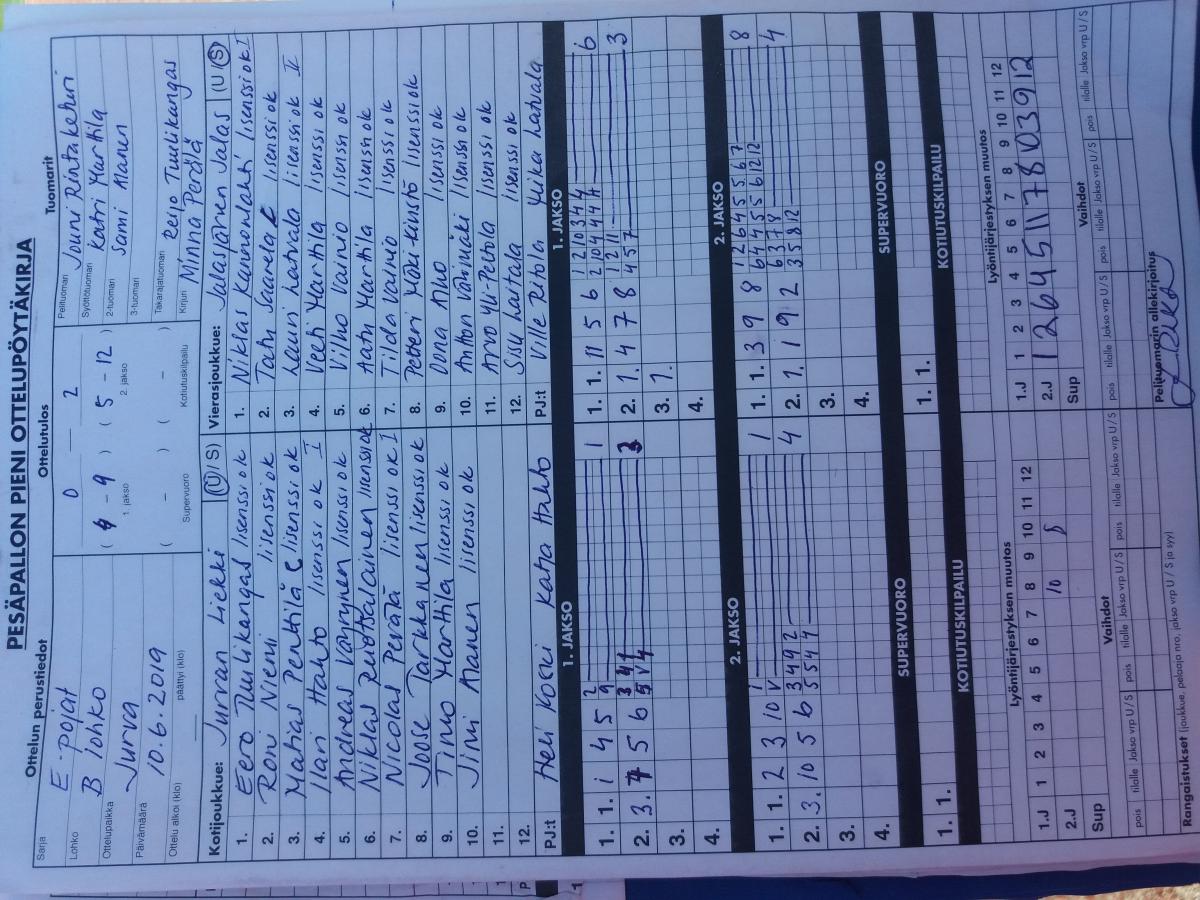 PESÄPALLON PIENI OTTELUPÖYTÄKIRJA
Ottelun perustiedot
Ottelutulos
Tuomarit
Sarja E-pojat
Lohko B lohko
Ottelupaikka Jurva
Päivämäärä 10.6.2019
Ottelu alkoi (klo) päättyi (klo)
0 — 2
(4 - 9) (5 - 12)
1. jakso 2. jakso
( - ) ( - )
Supervuoro Kotiutuskilpailu
Pelituomari Jouni Rintakeheri
Syöttötuomari Katri Marttila
2-tuomari Sami Manen
3-tuomari
Takarajatuomari Reijo Tuulikangas
Kirjuri Minna Perälä
Kotijoukkue: Jurvan Liekki (U/S)
1. Eero Tuulikangas lisenssi ok
2. Roni Niemi lisenssi ok
3. Matias Penttilä C lisenssi ok
4. Ilari Hahto lisenssi ok I
5. Andreas Väyrynen lisenssi ok
6. Niklas lisenssi ok
7. Nicolas Perätä lisenssi ok I
8. Joose Tarkkanen lisenssi ok
9. Timo Marttila lisenssi ok
10. Jimi Manen lisenssi ok
11.
12.
PJ:t Heli Koski Kata Hahto
Vierasjoukkue: Jalasjärven Jalas (U/S)
1. Niklas Kananlahti lisenssi ok I
2. Tatu Saarela lisenssi ok
3. Lauri Latvala lisenssi ok II
4. Veeti Marttila lisenssi ok
5. Vilho Vainio lisenssi ok
6. Aatu Marttila lisenssi ok
7. Tilda Vainio lisenssi ok
8. Petteri Mäki-Kuisto lisenssi ok
9. Oona Aho lisenssi ok
10. Anton Väinimäki lisenssi ok
11. Arvo Yli-Pertola lisenssi ok
12. Sisu Luttala lisenssi ok
PJ:t Ville Ritola Miika Latvala
1. JAKSO
1. 1. 1 4 5 2 9 1
2. 3. 7 5 6 3 4 1 5 V 4 3
3.
4.
1. JAKSO
1. 1. 11 5 6 1 2 10 3 4 4 2 10 4 4 4 11 6
2. 1. 4 7 8 1 2 11 4 5 7 3
3. 7.
4.
2. JAKSO
1. 1. 2 3 10 1 V 1
2. 3. 10 5 6 3 4 9 2 5 5 4 4 4
3.
4.
2. JAKSO
1. 1. 3 9 8 1 2 6 4 5 5 6 7 6 4 4 5 5 6 12 12 8
2. 1. 1 9 2 6 3 7 8 3 5 8 12 4
3.
4.
SUPERVUORO
1. 1.
SUPERVUORO
1. 1.
KOTIUTUSKILPAILU
KOTIUTUSKILPAILU
Lyöntijärjestyksen muutos
1.J 1 2 3 4 5 6 7 8 9 10 11 12
2.J 10 8
Sup
Lyöntijärjestyksen muutos
1.J 1 2 3 4 5 6 7 8 9 10 11 12
2.J 1 2 6 4 5 11 7 8 10 3 9 12
Sup
Vaihdot
pois tilalle Jakso vrp U / S pois tilalle Jakso vrp U / S pois tilalle Jakso vrp U / S
Vaihdot
pois tilalle Jakso vrp U / S pois tilalle Jakso vrp U / S pois tilalle Jakso vrp U / S
Rangaistukset (joukkue, pelaaja nro, jakso vrp U / S ja syy)
Pelituomarin allekirjoitus